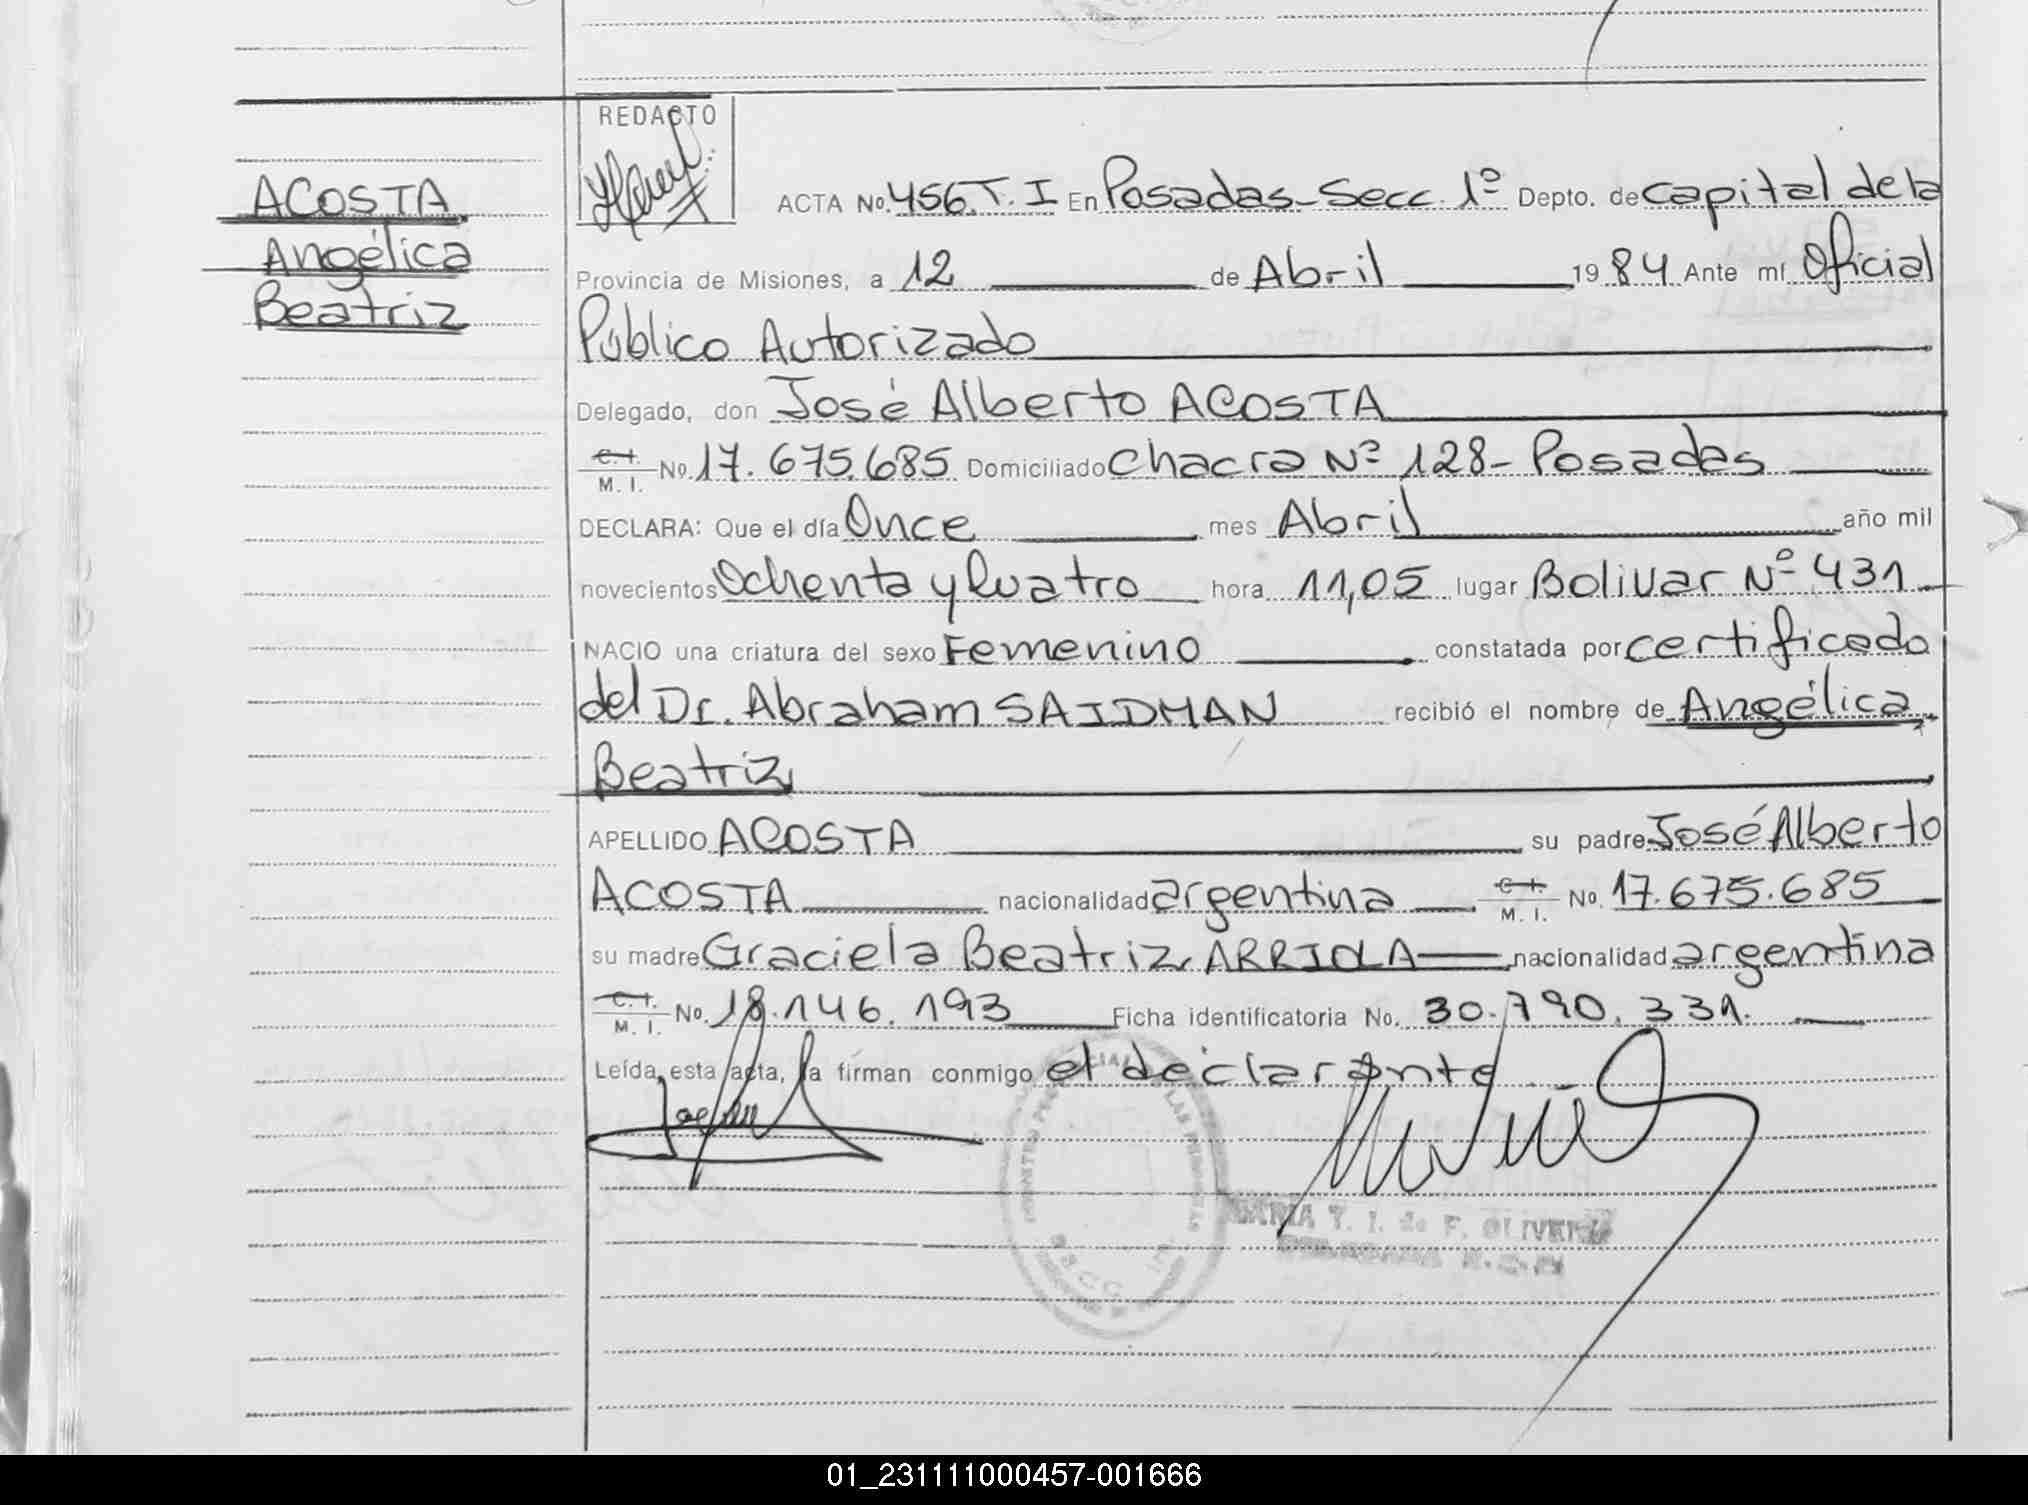 REDACTO
ACOSTA
Angélica
Beatriz
ACTA No. 456. T. I En Posadas - Secc. 1º Depto. de Capital de la
Provincia de Misiones, a 12 de Abril 1984 Ante mí Oficial
Público Autorizado
Delegado, don José Alberto ACOSTA
C. I.
M. I. No. 17.675.685 Domiciliado Chacra Nº 128 - Posadas
DECLARA: Que el día Once mes Abril año mil
novecientos Ochenta y Cuatro hora 11,05 lugar Bolivar Nº 431
NACIO una criatura del sexo Femenino constatada por certificado
del Dr. Abraham SAIDMAN recibió el nombre de Angélica
Beatriz
APELLIDO ACOSTA su padre José Alberto
ACOSTA nacionalidad argentina C. I. M. I. No. 17.675.685
su madre Graciela Beatriz ARRIOLA nacionalidad argentina
C. I.
M. I. No. 18.146.193 Ficha identificatoria No. 30.790.331.
Leída esta acta, la firman conmigo el declarante
MARIA T. I. de F. OLIVERA
01_231111000457-001666